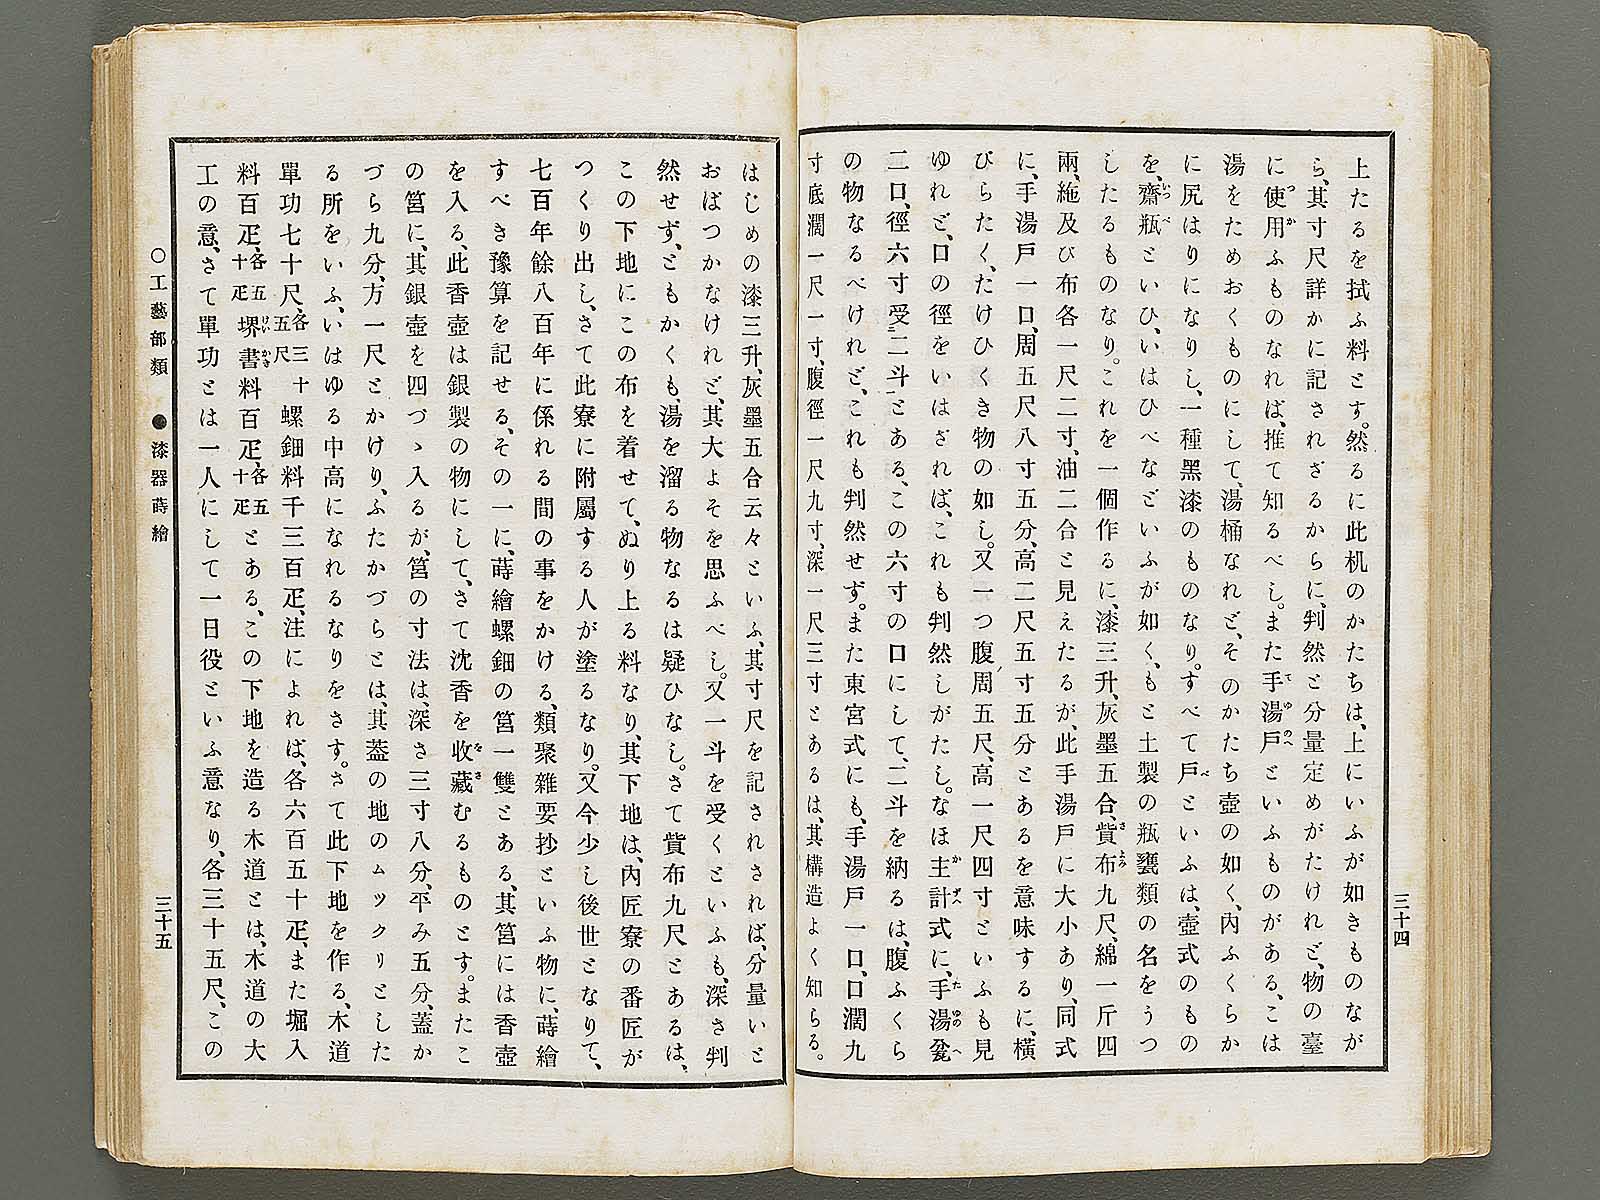 上たるを拭ふ料とす。然るに此机のかたちは、上にいふが如きものなが
ら、其寸尺詳かに記されざるからに、判然と分量定めがたけれど、物の臺
に使用ふものなれば、推て知るべし。また手湯戸といふものがある、こは
湯をためおくものにして、湯桶なれど、そのかたち壺の如く、内ふくらか
に尻はりになりし、一種黑漆のものなり。すべて戸といふは、壺式のもの
を、齋瓶といひ、いはひべなどいふが如く、もと土製の瓶甕類の名をうつ
したるものなり。これを一個作るに、漆三升、灰墨五合、貲布九尺、綿一斤四
兩、絁及び布各一尺二寸、油二合と見えたるが、此手湯戸に大小あり、同式
に、手湯戸一口、周五尺八寸五分、高二尺五寸五分とあるを意味するに、橫
びらたく、たけひくき物の如し。又一つ腹周五尺、高一尺四寸といふも見
ゆれど、口の徑をいはざれば、これも判然しがたし。なほ主計式に、手湯瓫
二口、徑六寸受二斗とある、この六寸の口にして、二斗を納るは、腹ふくら
の物なるべけれど、これも判然せず。また東宮式にも、手湯戸一口、口濶九
寸底濶一尺一寸、腹徑一尺九寸、深一尺三寸とあるは、其構造よく知らる。
三十四
はじめの漆三升、灰墨五合云々といふ、其寸尺を記されされば、分量いと
おぼつかなけれど、其大よそを思ふべし。又一斗を受くといふも、深さ判
然せず、ともかくも、湯を溜る物なるは疑ひなし。さて貲布九尺とあるは、
この下地にこの布を着せて、ぬり上る料なり、其下地は、內匠寮の番匠が
つくり出し、さて此寮に附屬する人が塗るなり。又今少し後世となりて、
七百年餘八百年に係れる間の事をかける、類聚雜要抄といふ物に、蒔繪
すべき豫算を記せる、その一に、蒔繪螺鈿の筥一雙とある、其筥には香壺
を入る、此香壺は銀製の物にして、さて沈香を收藏むるものとす。またこ
の筥に、其銀壺を四づゝ入るが、筥の寸法は、深さ三寸八分、平み五分、蓋か
づら九分、方一尺とかけり、ふたかづらとは、其蓋の地のムックリとした
る所をいふ、いはゆる中高になれるなりをさす。さて此下地を作る、木道
單功七十尺、各三十五尺螺鈿料千三百疋、注によれば、各六百五十疋、また堀入
料百疋、各五十疋堺書料百疋、各五十疋とある、この下地を造る木道とは、木道の大
工の意、さて單功とは一人にして一日役といふ意なり、各三十五尺、この
○工藝部類 ●漆器蒔繪
三十五